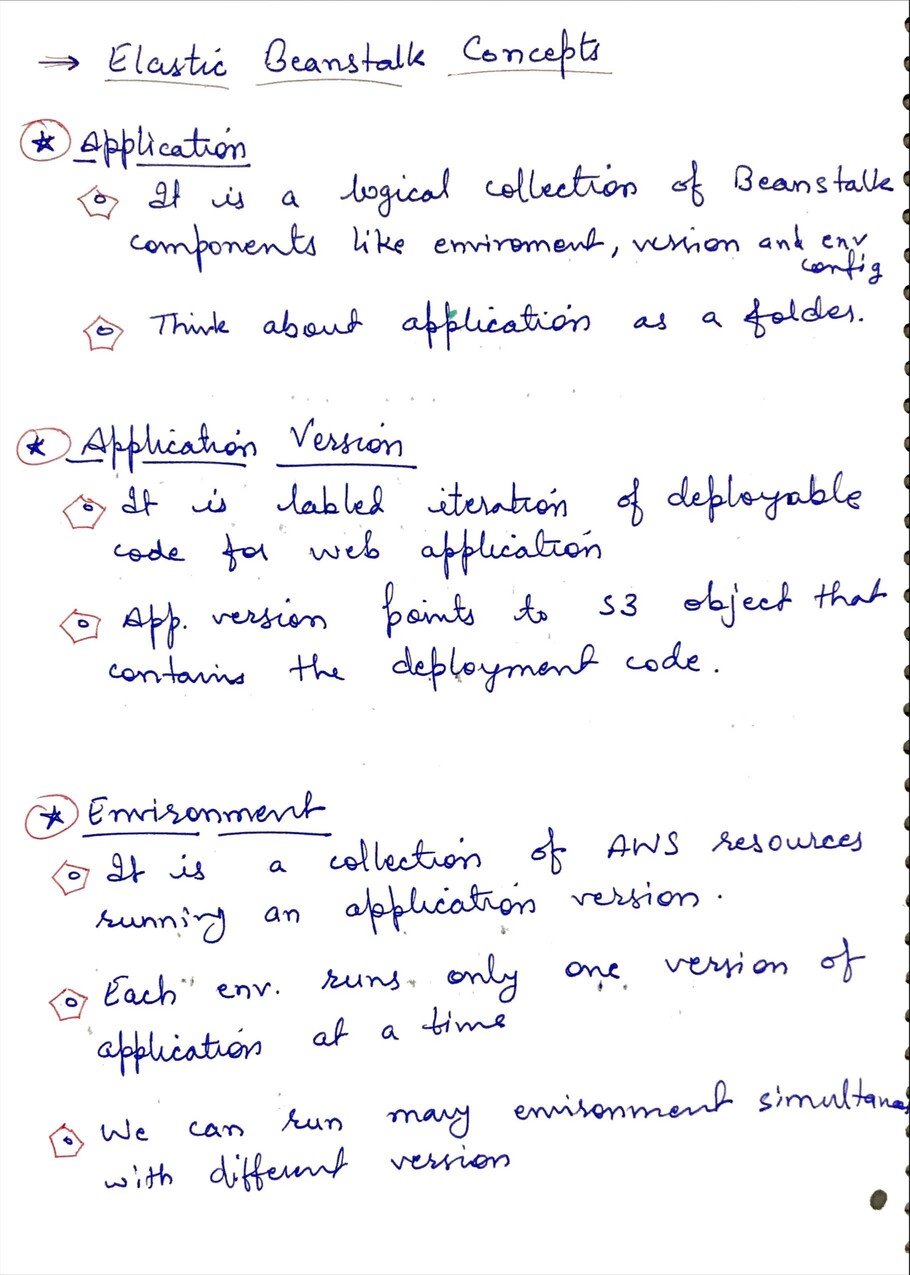 → Elastic Beanstalk Concepts
★ Application
It is a logical collection of Beanstalk
components like enviroment, version and env
config
Think about application as a folder.
★ Application Version
It is labled iteration of deployable
code for web application
App. version points to S3 object that
contains the deployment code.
★ Environment
It is a collection of AWS resources
running an application version.
Each env. runs only one version of
application at a time
We can run many environment simultane
with different version